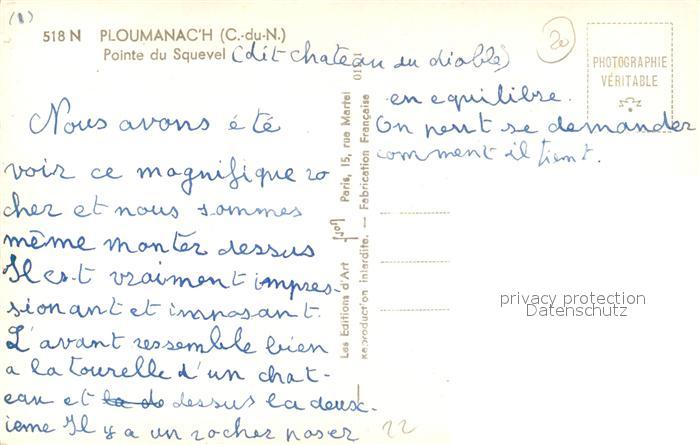 (1)
518 N PLOUMANAC'H (C.-du-N.)
Pointe du Squevel (dit chateau du diable)
20
PHOTOGRAPHIE
VÉRITABLE
Nous avons été
voir ce magnifique ro
cher et nous sommes
même monter dessus
Il est vraiment impres-
sionant et imposant.
L'avant ressemble bien
a la tourelle d'un chat-
eau et la de dessus la deux-
ieme Il y a un rocher poser
22
en equilibre.
On peut se demander
comment il tient.
Les Editions d'Art Jos Paris, 15, rue Martel
Reproduction interdite. — Fabrication Française
privacy protection
Datenschutz